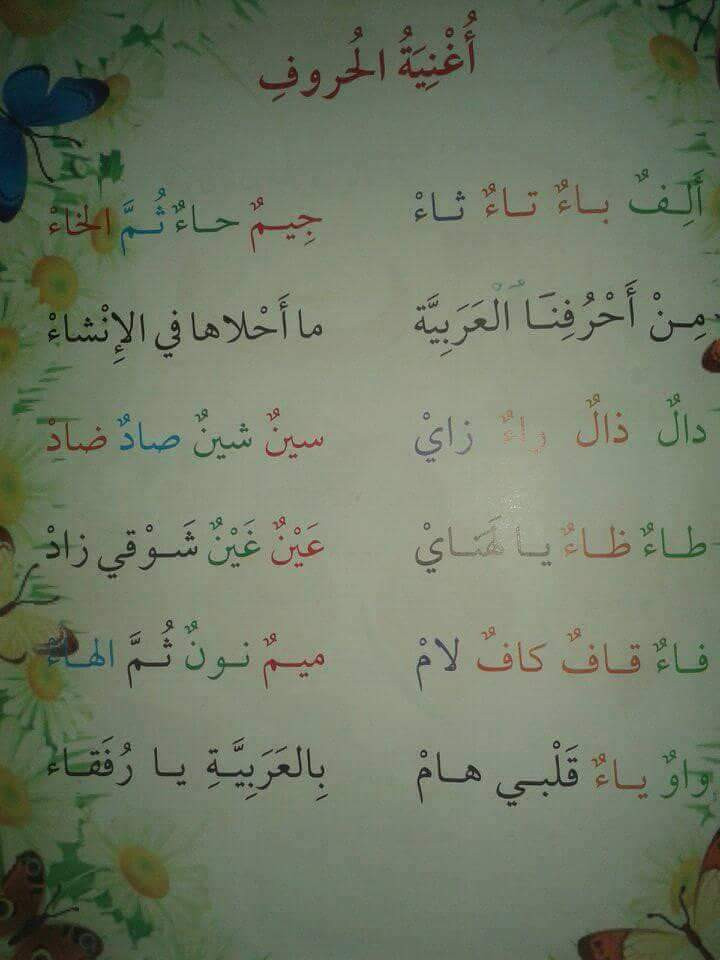 أُغْنِيَةُ الحُروفِ
أَلِـفٌ بـاءٌ تـاءٌ ثـاءْ جِيـمٌ حـاءٌ ثُـمَّ الخاءْ
مِـنْ أَحْرُفِنَـا الْعَرَبِيَّة ما أَحْلاها في الإِنْشاءْ
دالٌ ذالٌ راءٌ زايْ سينٌ شينٌ صادٌ ضادْ
طـاءٌ ظـاءٌ يـا هَنـايْ عَيْنٌ غَيْنٌ شَـوْقي زادْ
فـاءٌ قـافٌ كافٌ لامْ ميـمٌ نـونٌ ثُـمَّ الهـاءْ
واوٌ يـاءٌ قَلْبـي هـامْ بِالعَرَبِيَّـةِ يـا رُفَقـاء